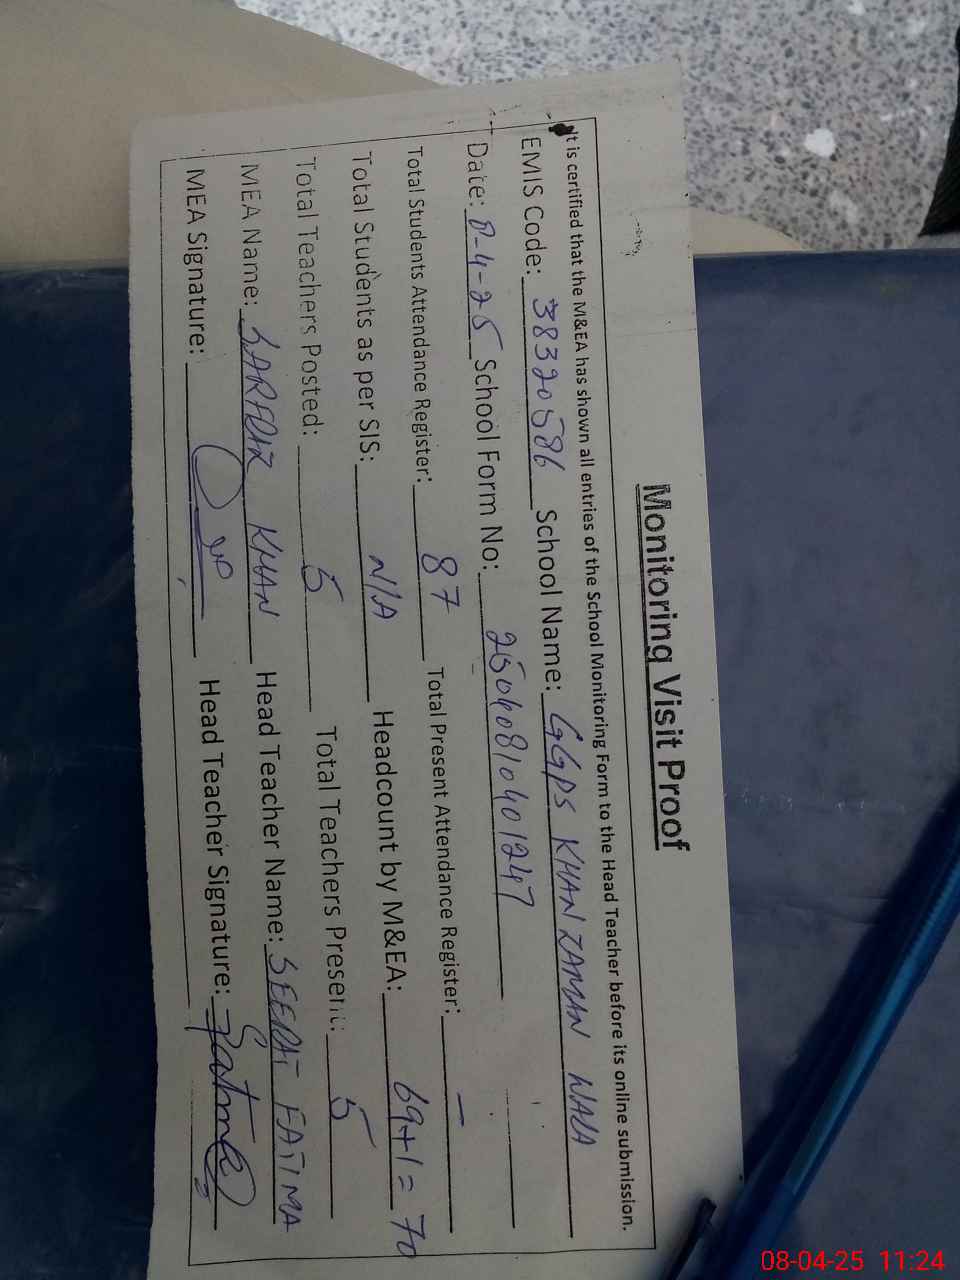 Monitoring Visit Proof
It is certified that the M&EA has shown all entries of the School Monitoring Form to the Head Teacher before its online submission.
EMIS Code: 38320586 School Name: GGPS KHAN ZAMAN WALA
Date: 8-4-25 School Form No: 25040810401247
Total Students Attendance Register: 87 Total Present Attendance Register: —
Total Students as per SIS: N/A Headcount by M&EA: 69+1= 70
Total Teachers Posted: 5 Total Teachers Present: 5
MEA Name: SARFRAZ KHAN Head Teacher Name: SEERAT FATIMA
MEA Signature: Head Teacher Signature: Fatima
08-04-25 11:24